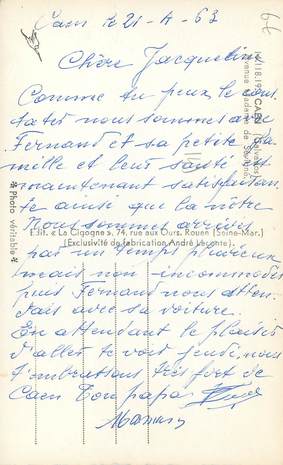 Caen le 21-4-63
Chère Jacqueline
Comme tu peux le cons
tater nous sommes avec
Fernand et sa petite fa
mille et leur santé est
maintenant satisfaisan
te ainsi que la nôtre
Nous sommes arrivés
par un temps pluvieux
mais non incommodés
puis Fernand nous atten
dais avec sa voiture.
En attendant le plaisir
d'aller te voir jeudi, nous
t'embrassons très fort de
Caen Ton papa
Maman
CAEN (Calvados)
Edit. « La Cigogne », 74, rue aux Ours, Rouen (Seine-Mar.)
(Exclusivité de fabrication André Leconte).
★ Photo véritable ★